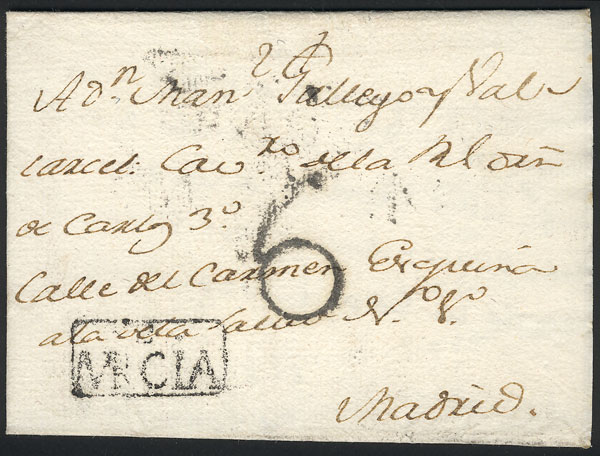 A Dn. Man.l Gallego y Val-
carcel. Cav.ro de la Rl. orn
de Carlos 3.º
6
Calle del Carmen Esquina
a la de la Salud N.º 8.º
MRCIA
Madrid.